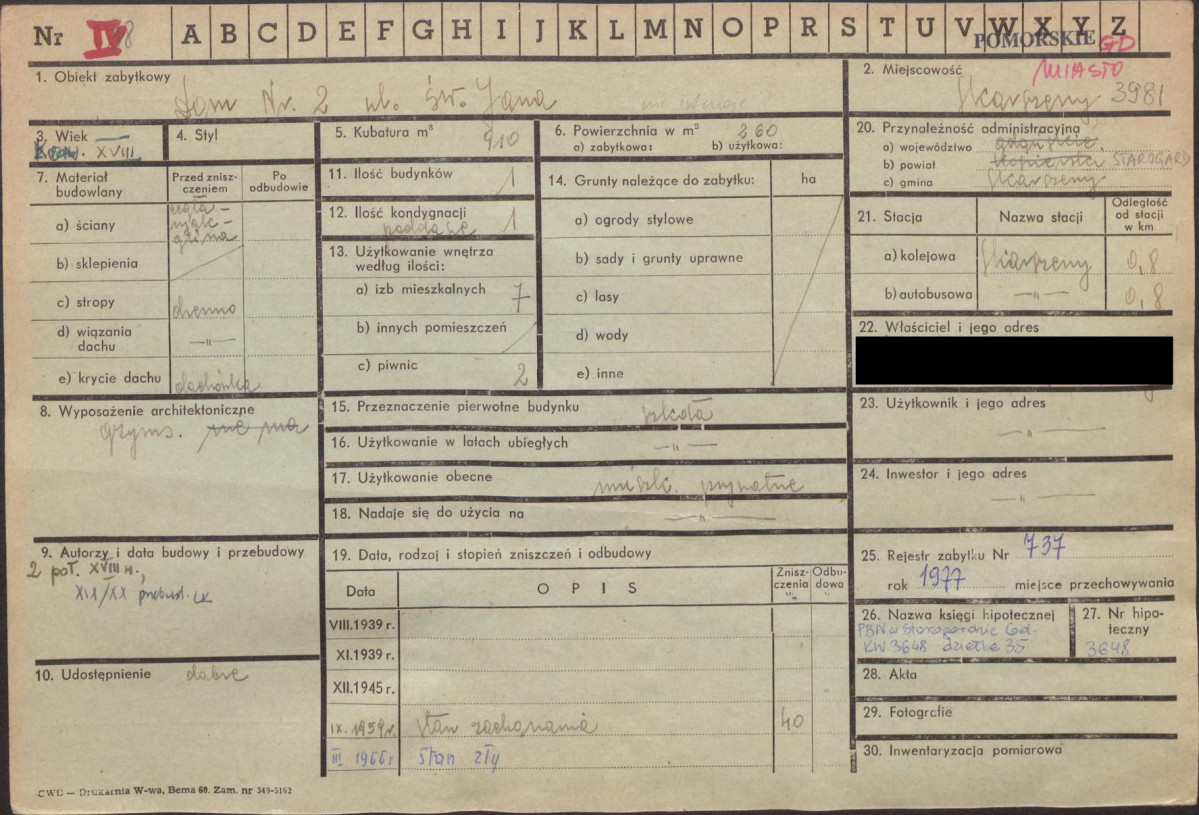 Nr IV
A B C D E F G H I J K L M N O P R S T U V W X Y Z
POMORSKIE GD
1. Obiekt zabytkowy
Dom Nr. 2 ul. Św. Jana nie istnieje ?
2. Miejscowość MIASTO
Skarszewy 3981
3. Wiek
XVIII
4. Styl
5. Kubatura m³ 910
6. Powierzchnia w m² 260
a) zabytkowa: b) użytkowa:
7. Materiał budowlany
Przed zniszczeniem
Po odbudowie
a) ściany
cegła –
glina
b) sklepienia
c) stropy drewno
d) wiązania dachu —"—
e) krycie dachu dachówka
8. Wyposażenie architektoniczne
gzyms. nie ma
9. Autorzy i data budowy i przebudowy
2 poł. XVIII w.,
XIX/XX przebud.
10. Udostępnienie dobre
11. Ilość budynków 1
12. Ilość kondygnacji 1
poddasze
13. Użytkowanie wnętrza
według ilości:
a) izb mieszkalnych 7
b) innych pomieszczeń
c) piwnic 2
14. Grunty należące do zabytku: ha
a) ogrody stylowe
b) sady i grunty uprawne
c) lasy
d) wody
e) inne
15. Przeznaczenie pierwotne budynku szkoła
16. Użytkowanie w latach ubiegłych —"—
17. Użytkowanie obecne mieszk. prywatne
18. Nadaje się do użycia na —"—
19. Data, rodzaj i stopień zniszczeń i odbudowy
Data
OPIS
Zniszczenia "/"
Odbudowa
VIII.1939 r.
XI.1939 r.
XII.1945 r.
IX. 1959 r. stan zachowania 40
III 1966 r Stan zły
20. Przynależność administracyjna
a) województwo gdańskie
b) powiat STAROGARD
c) gmina Skarszewy
21. Stacja
Nazwa stacji
Odległość od stacji w km
a) kolejowa Skarszewy 0,8
b) autobusowa —"— 0,8
22. Właściciel i jego adres
23. Użytkownik i jego adres
—"—
24. Inwestor i jego adres
—"—
25. Rejestr zabytku Nr 737
rok 1977 miejsce przechowywania
26. Nazwa księgi hipotecznej
PBN w Starogardzie Gd.
KW 3648 działka 35
27. Nr hipoteczny
3648
28. Akta
29. Fotografie
30. Inwentaryzacja pomiarowa
CWD — Drukarnia W-wa, Bema 60. Zam. nr 349-5162